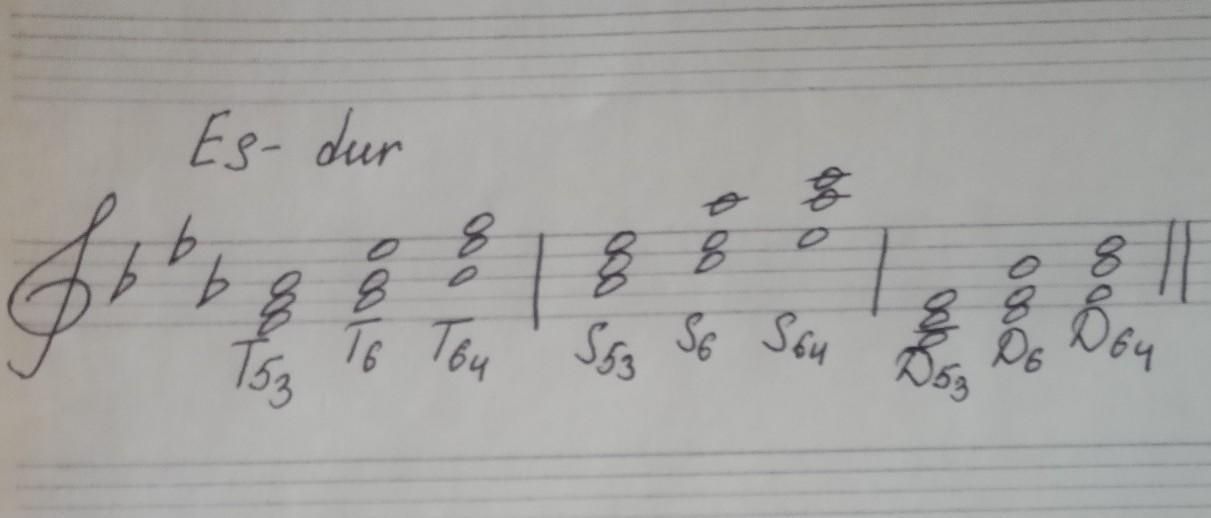 Es- dur
T53 T6 T64 S53 S6 S64 D53 D6 D64